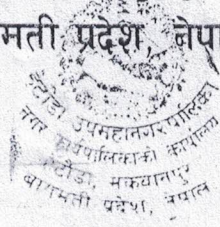 मती प्रदेश, नेपा
हेटौंडा उपमहानगरपालिका
नगर कार्यपालिकाको कार्यालय
हेटौंडा, मकवानपुर
बागमती प्रदेश, नेपाल